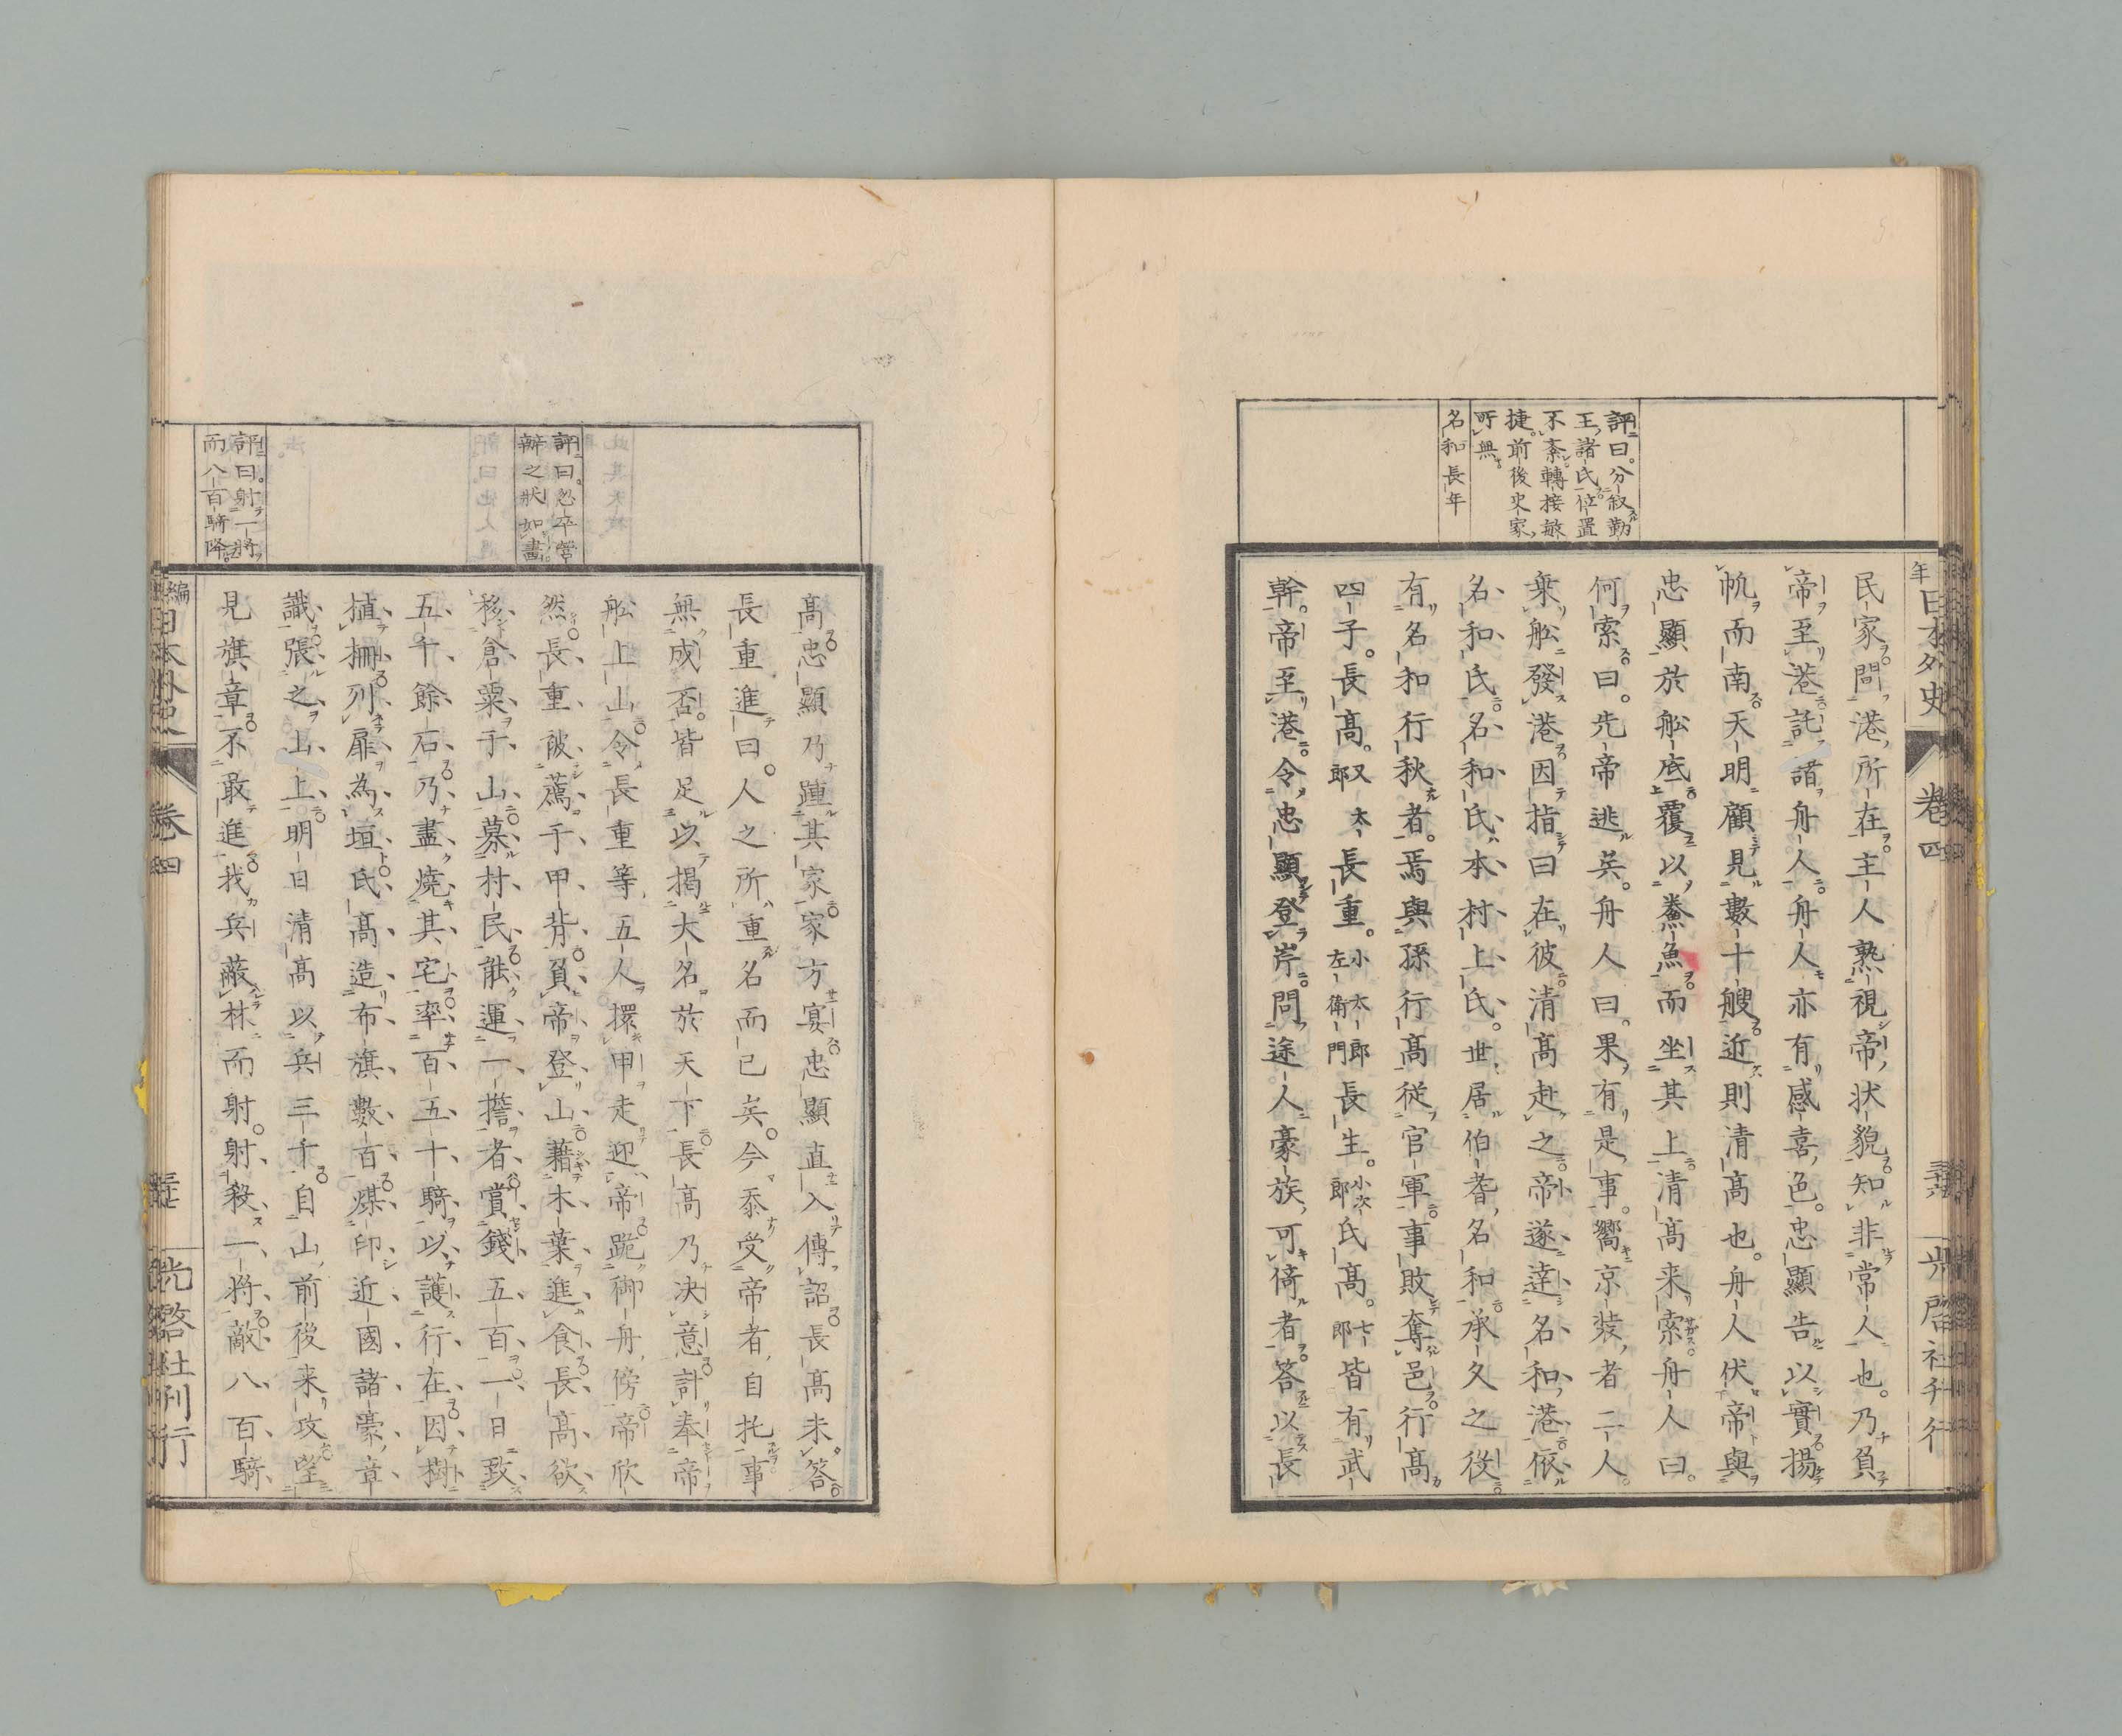 評曰。分叙勤
王諸氏位置
不紊轉接敏
捷。前後史家
所無。
名和長年
民家問港所在。主人熟視帝狀貌知非常人也。乃負
帝至港託諸舟人。舟人亦有感喜色。忠顯告以實揚
帆而南。天明顧見數十艘近。則清高也。舟人伏帝與
忠顯於舩底覆以鯗魚。而坐其上。清高来索。舟人曰。
何索。曰。先帝逃矣。舟人曰。果有是事。嚮京裝者二人。
乗舩發港。因指曰在彼。清高赴之。帝遂達名和港。依
名和氏。名和氏本村上氏。世居伯耆名和。承久之役
有名和行秋者。焉與孫行高従官軍。事敗奪邑。行高
四子。長高。又太郎長重。小太郎左衛門長生。小次郎氏高。七郎皆有武
幹。帝至港。令忠顯登岸。問途人豪族可倚者。答以長
年日本外史
卷四
光啓社刊行
評曰。怱卒營
辦之狀如畫。
評曰。射一將
而八百騎降。
高。忠顯乃踵其家。家方宴。忠顯直入傳詔。長高未答。
長重進曰。人之所重名而已矣。今忝受帝者自托事
無成否。皆足以揭大名於天下。長高乃決意計奉帝
舩上山。令長重等五人擐甲走迎帝。跪御舟傍。帝欣
然。長重被薦于甲背負帝登山。藉木葉進食。長高欲
移倉粟于山。募村民。能運一擔者賞錢五百。一日致
五千餘石。乃盡燒其宅。率百五十騎以護行在。因樹
植柵列扉為垣。氏高造布旗數百。煤印近國諸豪章
識。張之山上。明日清高以兵三千自山前後来攻。望
見旗章不敢進。我兵蔽林而射。射殺一將。敵八百騎
編
日本外史
卷四
光啓社刊行